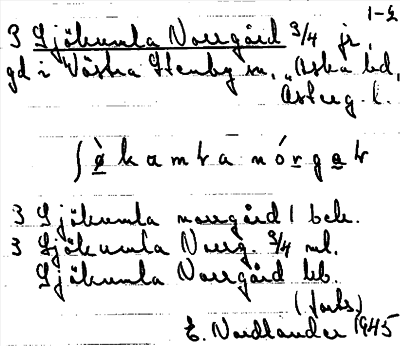 1-2
3 Sjökumla Norrgård 3/4 jr,
gd i Västra Stenby sn, Aska hd,
Österg. l.
3 Sjökumla norrgård 1 bek.
3 Sjökumla Norrg. 3/4 ml.
Sjökumla Norrgård kb.
(forts)
E. Nordlander 1945